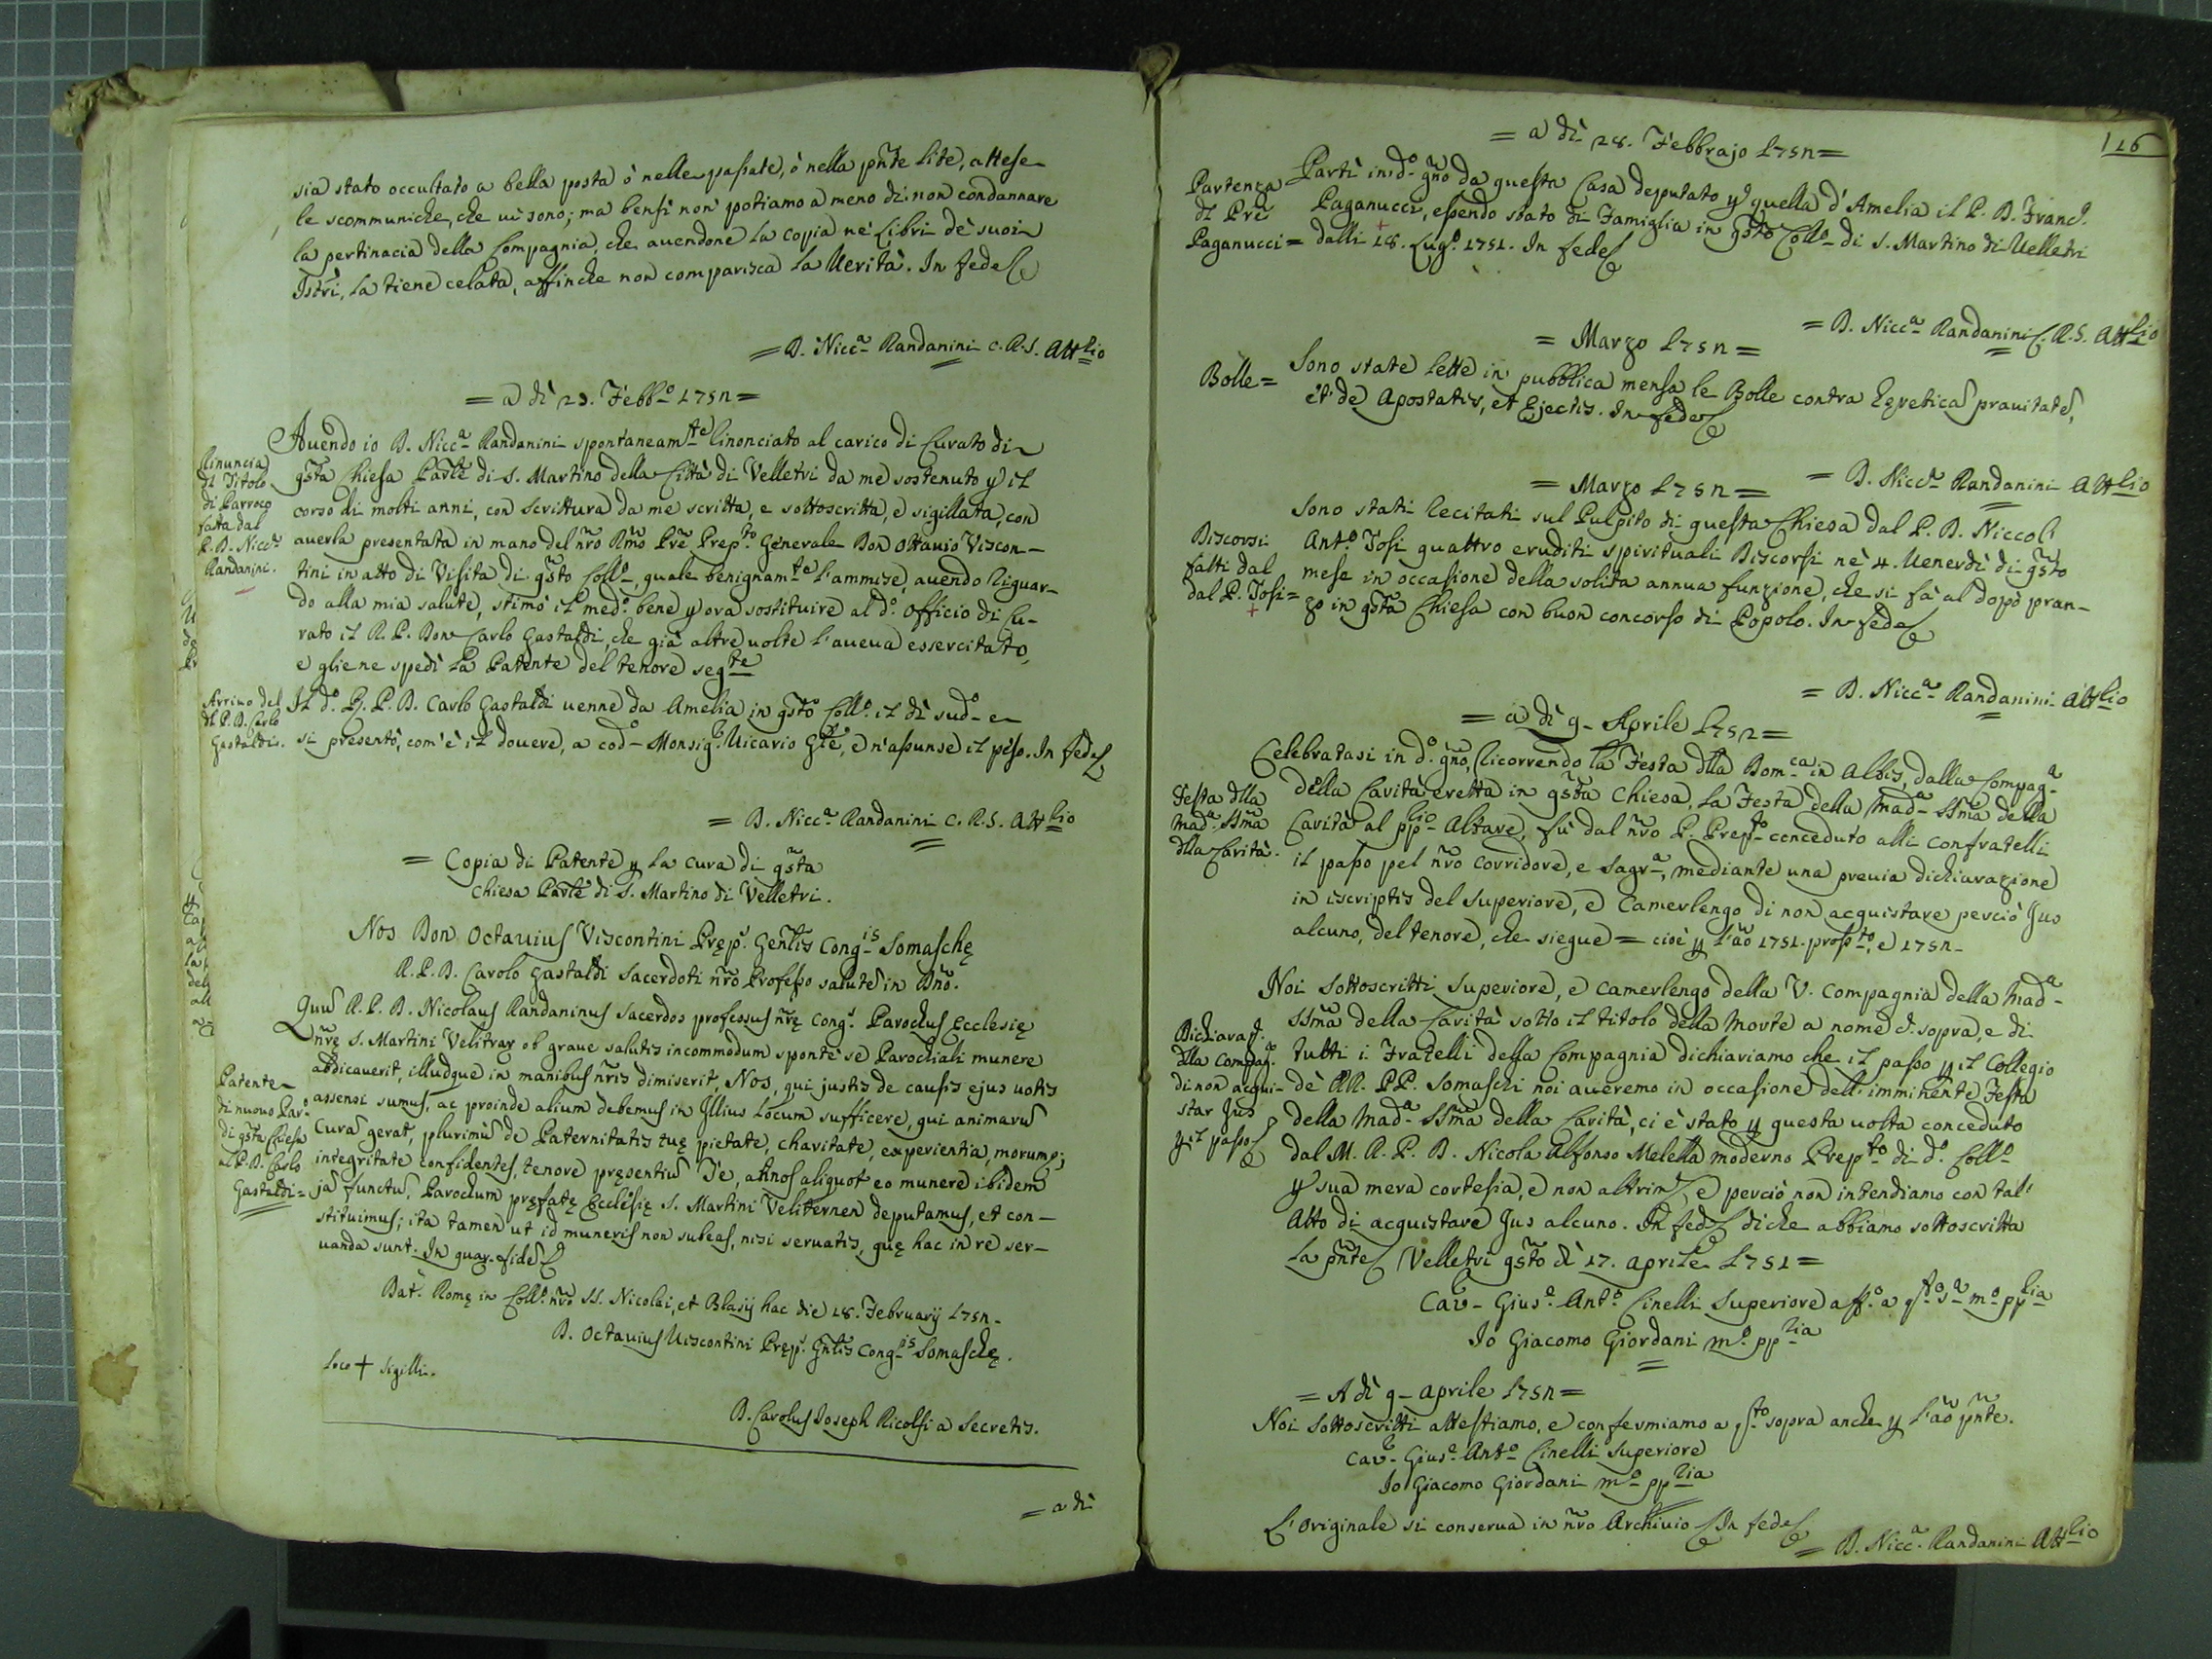 sia stato occultato a bella posta ò nelle passate, ò nella pñte lite, attese
le scommuniche, che vi sono; ma bensi non potiamo a meno di non condannare
la pertinacia della Compagnia, che avendone la copia ne' Libri de' suoi
Istri, la tiene celata, affinche non comparisca la Verità. In fede
= D. Nicc.a Randanini C. R. S. Att.rio
= a dì 23. Febb.o 1752 =
Rinuncia
di Titolo
di Parroco
fatta dal
P. D. Nicc.a
Randanini.
Avendo io D. Nicc.a Randanini spontaneam.te rinonciato al carico di Curato di
q̃sta Chiesa Parle di S. Martino della Città di Velletri da me sostenuto p il
corso di molti anni, con scrittura da me scritta, e sottoscritta, e sigillata, con
averla presentata in mano del ñro Rmo Pre Prep.to Generale Don Ottavio Viscon-
tini in atto di Visita di q̃sto Coll.o, quale benignam.te l'ammise, avendo riguar-
do alla mia salute, stimò il med.o bene p ora sostituire al d.o officio di Cu-
rato il R. P. Don Carlo Gastaldi, che già altre volte l'aveva essercitato,
e gliene spedì la Patente del tenore seg.te
Arrivo del
di P. D. Carlo
Gastaldi.
Il d.o R. P. D. Carlo Gastaldi venne da Amelia in q̃sto Coll.o il dì sud.o e
si presentò, com'è il dovere, a cod.o Monsig.r Vicario Gle, e n'assunse il peso. In fede
= D. Nicc.a Randanini C. R. S. Att.rio
= Copia di Patente p la cura di q̃sta
Chiesa Parle di S. Martino di Velletri.
Nos Don Octavius Viscontini Pręp.s Gentis Cong.is Somaschę
R. P. D. Carolo Gastaldi Sacerdoti ñro Professo salute in Dño.
Quu R. P. D. Nicolaus Randaninus Sacerdos professus ñrę Cong.s Parochus Ecclesię
ñrę S. Martini Velitrar ob grave salutis incommodum sponte se Parochiali munere
abdicaverit, illudque in manibus ñris dimiserit, Nos, qui justis de causis ejus votis
Patente
di nuovo Par.o
di q̃sta Chiesa
al P. D. Carlo
Gastaldi =
assensi sumus, ac proinde alium debemus in Illius locum sufficere, qui animaru
Cura gerat, plurimu de Paternitatis tuę pietate, charitate, experientia, morumq;
integritate confidentes, tenore pręsentiu Te, annos aliquot eo munere ibidem
ja functu, Parochum pręfatę Ecclesię S. Martini Veliternen deputamus, et con-
stituimus; ita tamen ut id muneris non subeas, nisi servatis, quę hac in re ser-
vanda sunt. In quar. fide
Dat. Romę in Coll.o ñro SS. Nicolai, et Blasij hac die 18. Februarij 1752.
D. Octavius Viscontini Pręp.s Gñtis Cong.is Somaschę.
Loco + Sigilli.
D. Carolus Joseph Ricolfi a Secretis.
= a dì
116
= a dì 28. Febbrajo 1752 =
Partenza
di Pre
Paganucci =
Partì in d.o gñо da questa Casa deputato p quella d'Amelia il P. D. Franc.o
Paganucci, essendo stato di Famiglia in q̃sto Coll.o di S. Martino di Velletri
dalli 18. Lug.o 1751. In fede
= D. Nicc.a Randanini C. R. S. Att.rio
= Marzo 1752 =
Bolle =
Sono state lette in pubblica mensa le Bolle contra hęretica pravitate,
et de Apostatis, et Ejectis. In fede
= D. Nicc.a Randanini Att.rio
= Marzo 1752 =
Discorsi
fatti dal
dal P. Tosi =
Sono stati recitati sul Pulpito di questa Chiesa dal P. D. Niccol
Ant.o Tosi quattro eruditi spirituali Discorsi ne' 4. Venerdì di q̃sto
mese in occasione della solita annua funzione, che si fà al dopo pran-
zo in q̃sta Chiesa con buon concorso di Popolo. In fede
= D. Nicc.a Randanini Att.rio
= a dì 9. Aprile 1752 =
Festa dlla
Mad.a SSma
dlla Carità.
Celebratasi in d.o gño, ricorrendo la Festa dlla Dom.ca in Albis, dalla Compag.a
della Carità eretta in q̃sta Chiesa, la Festa della Mad.a SSma della
Carità al pp.rio Altare, fù dal ñro P. Prep.to conceduto alli confratelli
il passo pel ñro corridore, e Sagr.a, mediante una previa dichiarazione
in iscriptis del Superiore, e Camerlengo di non acquistare perciò Jus
alcuno, del tenore, che siegue = cioè p l'ão 1751. pross.to, e 1752.
Dichiaraz.
dlla Compag.a
di non acqui-
star Jus
p il passo
Noi sottoscritti Superiore, e Camerlengo della V. Compagnia della Mad.a
SSma della Carità sotto il titolo della Morte a nome c. sopra, e di
tutti i Fratelli dessa Compagnia dichiariamo che il passo p il Collegio
de' RR. PP. Somaschi noi averemo in occasione dell'imminente Festa
della Mad.a SSma della Carità, ci è stato p questa volta conceduto
dal M. R. P. D. Nicola Alfonso Meletta moderno Prep.to di d.o Coll.o
p sua mera cortesia, e non altrim, e perciò non intendiamo con tal'
Atto di acquistare Jus alcuno. In fede di che abbiamo sottoscritta
la pñte Velletri q̃sto dì 17. Aprile 1751 =
Cav.r Gius.e Ant.o Cinelli Superiore aff.o a q.to s.a m.o pp.ria
Io Giacomo Giordani m.o pp.ria
= A dì 9. Aprile 1752 =
Noi sottoscritti attestiamo, e confermiamo a q.to sopra anche p l'ão pñte.
Cav.r Gius.e Ant.o Cinelli Superiore
Io Giacomo Giordani m.o pp.ria
L'originale si conserva in ñro Archivio In fede
= D. Nicc.a Randanini Att.rio